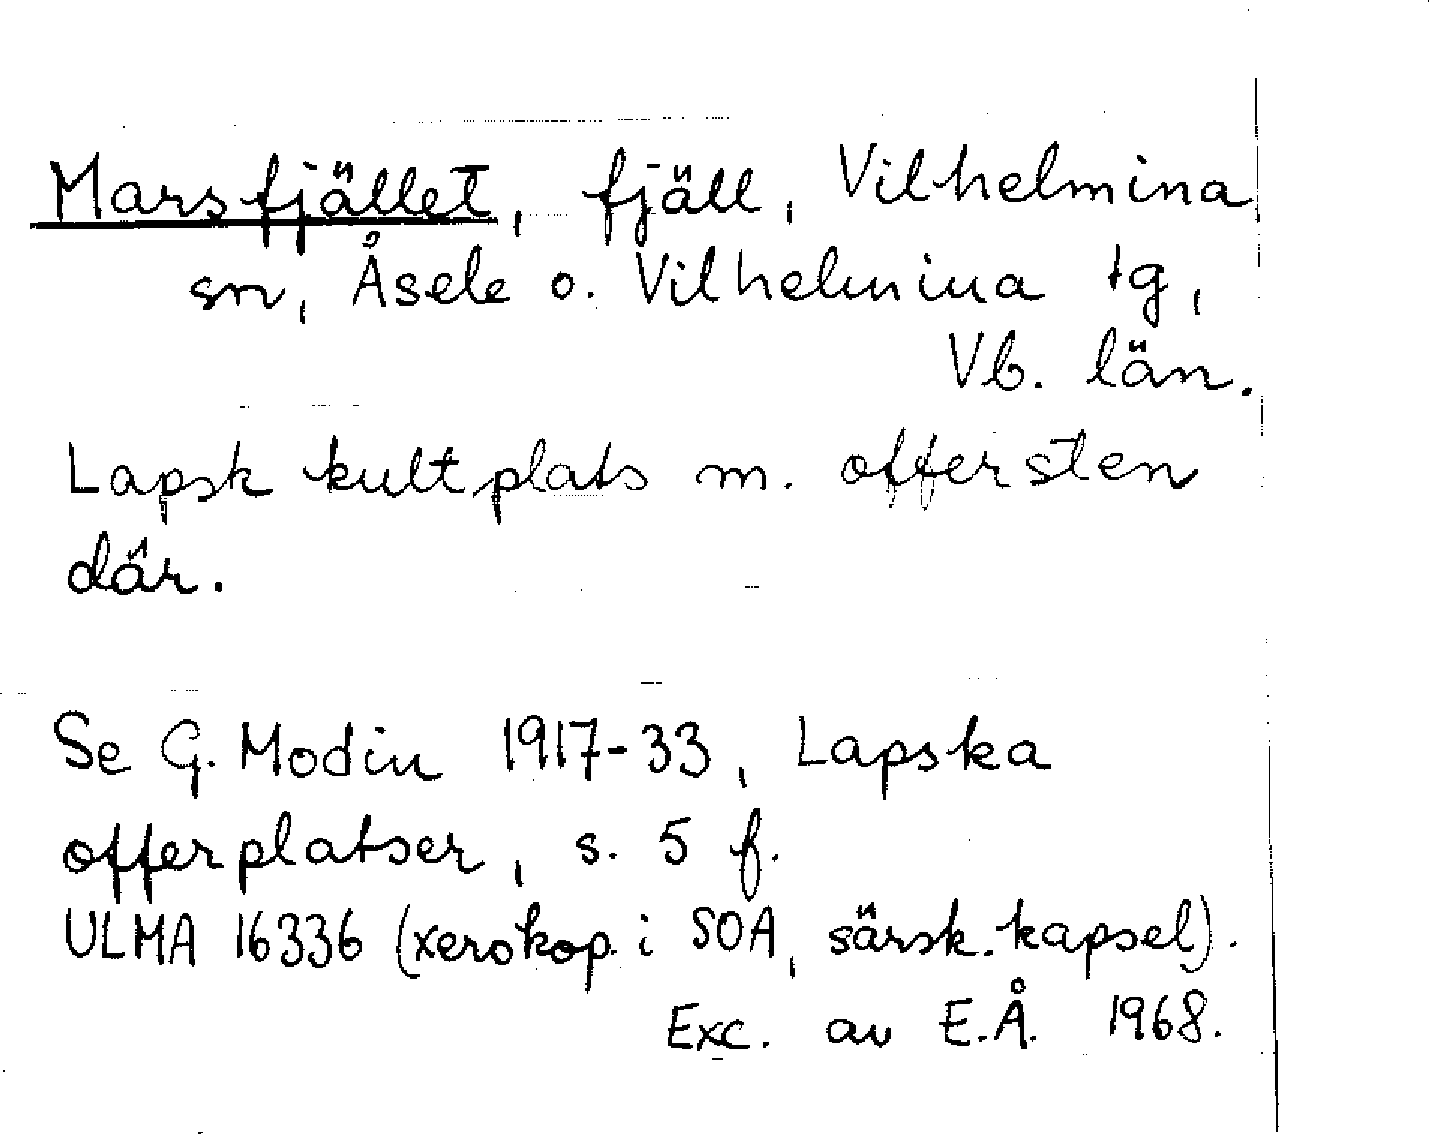 Marsfjället, fjäll, Vilhelmina
sn, Åsele o. Vilhelmina tg,
Vb. län.
Lapsk kultplats m. offersten
där.
Se G. Modin 1917-33, Lapska
offerplatser, s. 5 f.
ULMA 16336 (xerokop. i SOA, särsk. kapsel).
Exc. av E.Å. 1968.